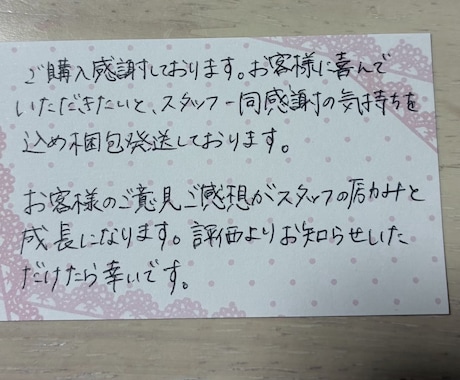 ご購入感謝しております。お客様に喜んで
いただきたいと、スタッフ一同感謝の気持ちを
込め梱包発送しております。
お客様のご意見ご感想がスタッフの励みと
成長になります。評価よりお知らせいた
だけたら幸いです。